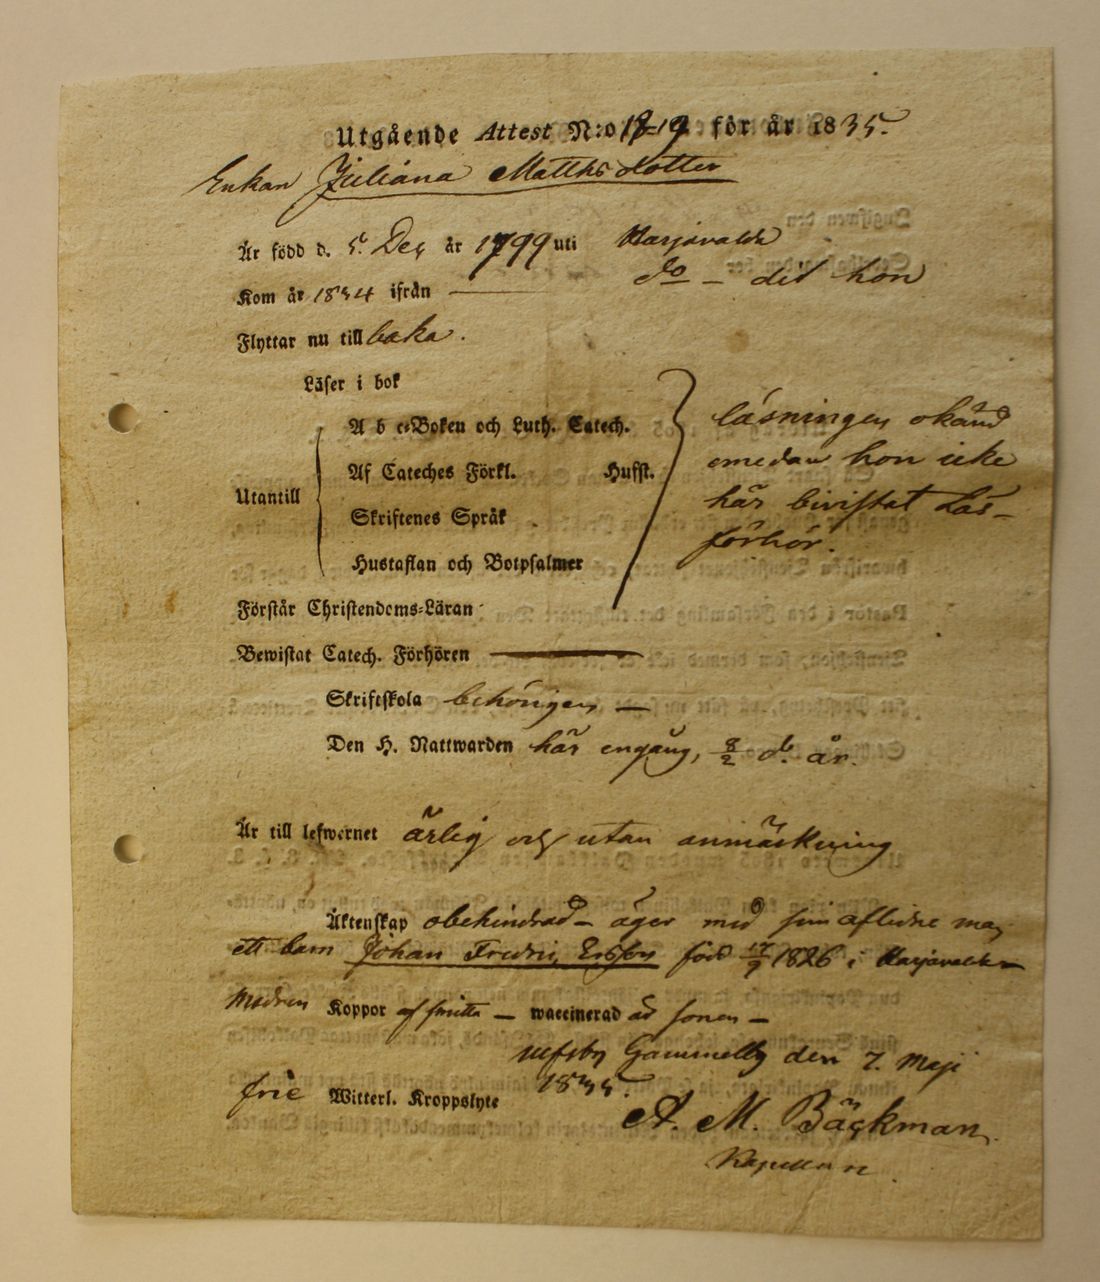 Utgående Attest N:o 18-19 för år 1835.
Enkan Juliana Matths dotter
Är född d. 5. Dec år 1799 uti Harjavalda
Kom år 1834 ifrån — do — dit hon
Flyttar nu till baka.
Läser i bok
A b c-Boken och Luth. Catech.
Af Cateches Förkl. Husst.
Utantill
Skriftenes Språk
Hustaflan och Botpsalmer
läsningen okänd
emedan hon icke
här bivistat Läs-
förhör.
Förstår Christendoms-Läran
Bewistat Catech. Förhören —
Skriftskola behörigen —
Den H. Nattwarden här engång, 8/2 d. år.
Är till lefwernet ärlig och utan anmärkning
Äktenskap obehindrad – äger med sin aflidne man
ett barn Johan Fredric Ersson född 17/9 1826 i Harjavalda —
Modren Koppor af smitta — waccinerad är sonen —
Ulfsby Gammelby den 7. Maji
1835.
frie Witterl. Kroppslyte
A. M. Bäckman
Kapellan